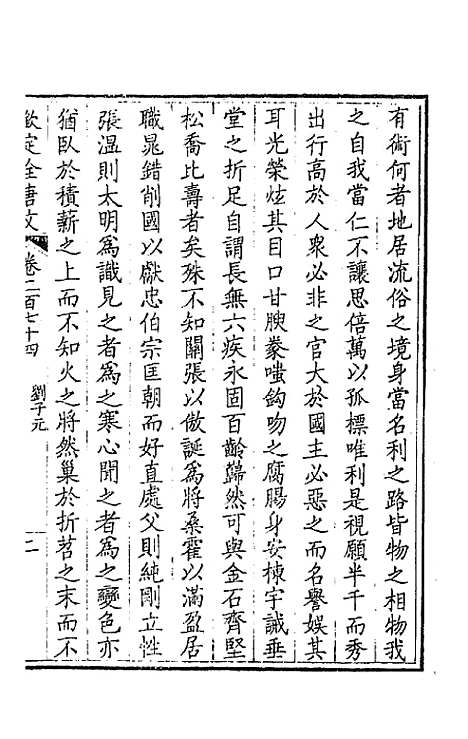 有術何者地居流俗之境身當名利之路皆物之相物我
之自我當仁不讓思倍萬以孤標唯利是視願半千而秀
出行高於人衆必非之官大於國主必惡之而名譽娱其
耳光榮炫其目口甘腴豢嗤鈎吻之腐腸身安棟宇誡垂
堂之折足自謂長無六疾永固百齡巋然可與金石齊堅
松喬比壽者矣殊不知關張以傲誕爲將桑霍以滿盈居
職晁錯削國以獻忠伯宗匡朝而好直處父則純剛立性
張溫則太明爲識見之者爲之寒心聞之者爲之變色亦
猶臥於積薪之上而不知火之將然巢於折苕之末而不
欽定全唐文 卷二百七十四 劉子元 二